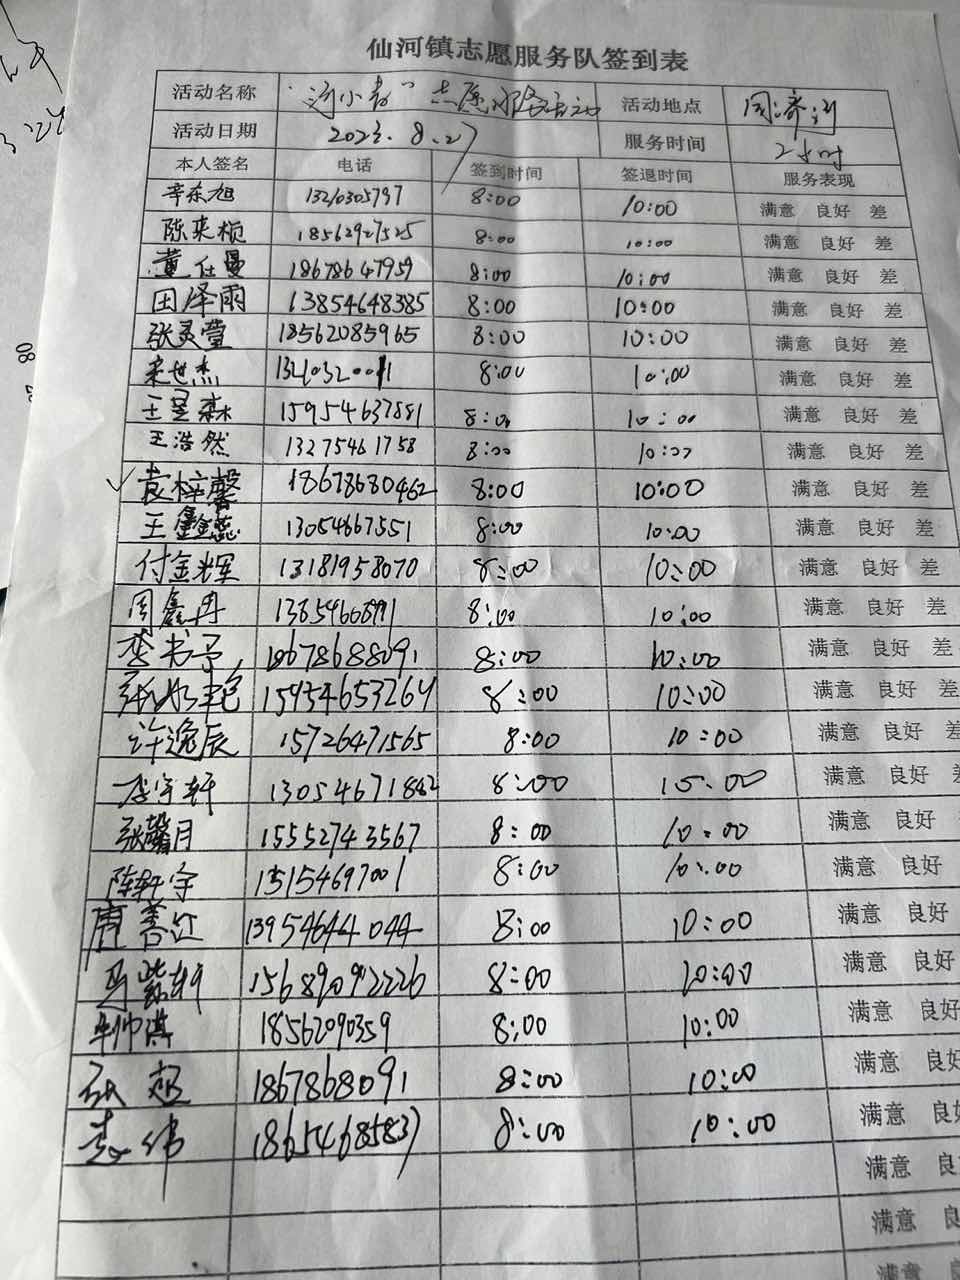 仙河镇志愿服务队签到表
活动名称 "河小青"志愿服务活动 活动地点
活动日期 2023.8.27 服务时间 2小时
本人签名 电话 签到时间 签退时间 服务表现
辛东旭 13210305797 8:00 10:00 满意 良好 差
陈奕桓 18562927525 8:00 10:00 满意 良好 差
董仕曼 18678647959 8:00 10:00 满意 良好 差
田泽雨 13854648385 8:00 10:00 满意 良好 差
张灵萱 18562085965 8:00 10:00 满意 良好 差
世杰 8:00 10:00 满意 良好 差
王昱森 15954637881 8:00 10:00 满意 良好 差
王浩然 13275461758 8:00 10:00 满意 良好 差
袁梓馨 18678680462 8:00 10:00 满意 良好 差
王鑫蕊 13054667551 8:00 10:00 满意 良好 差
付金辉 13181958070 8:00 10:00 满意 良好 差
周鑫冉 13854668991 8:00 10:00 满意 良好 差
李书予 18678688091 8:00 10:00 满意 良好 差
15954653264 8:00 10:00 满意 良好 差
许逸辰 15726471565 8:00 10:00 满意 良好 差
李宇轩 13054671862 8:00 10:00 满意 良好 差
张馨月 15552743567 8:00 10:00 满意 良好
陈轩宇 15154697001 8:00 10:00 满意 良好
唐善江 13954644044 8:00 10:00 满意 良好
马紫轩 15689092226 8:00 10:00 满意 良好
牟帅淇 18562090359 8:00 10:00 满意 良好
张超 18678688091 8:00 10:00 满意 良好
袁伟 18654685837 8:00 10:00 满意 良好
满意 良
满意 良
满意